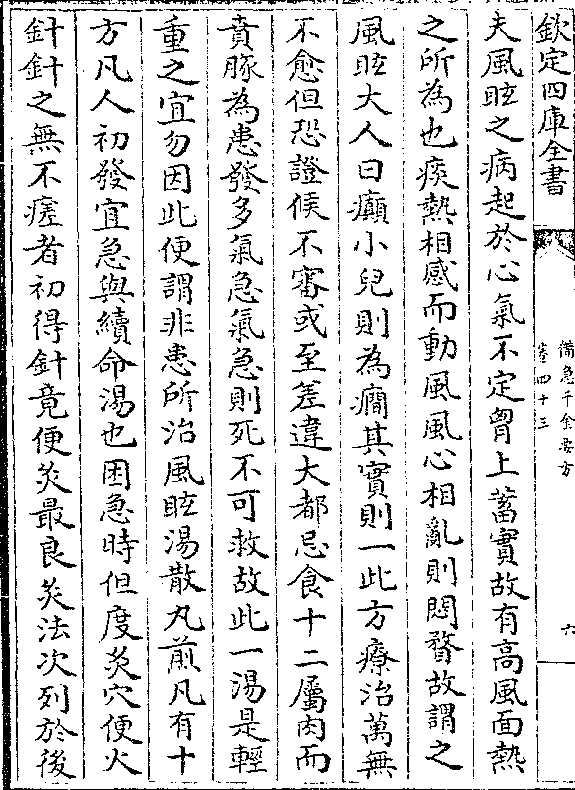 欽定四庫全書
備急千金要方
卷四十三
六
夫風眩之病起於心氣不定胷上蓄實故有高風面熱
之所為也痰熱相感而動風風心相亂則悶瞀故謂之
風眩大人曰癲小兒則為癎其實則一此方療治萬無
不愈但恐證候不審或至差違大都忌食十二屬肉而
賁豚為患發多氣急氣急則死不可救故此一湯是輕
重之宜勿因此便謂非患所治風眩湯散丸煎凡有十
方凡人初發宜急與續命湯也困急時但度灸穴便火
針針之無不瘥者初得針竟便灸最良灸法次列於後